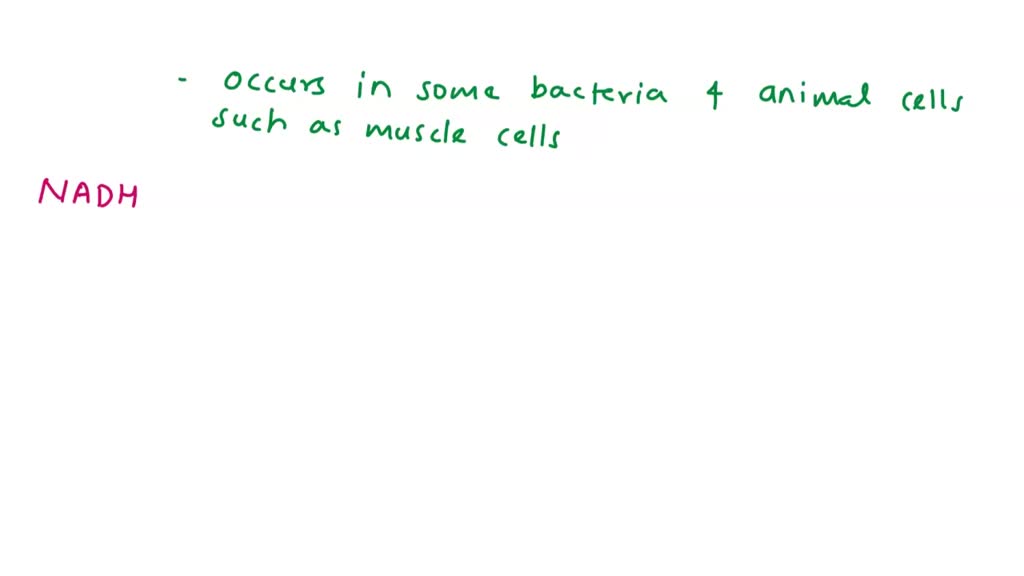 - occurs in some bacteria & animal cells
such as muscle cells
NADH